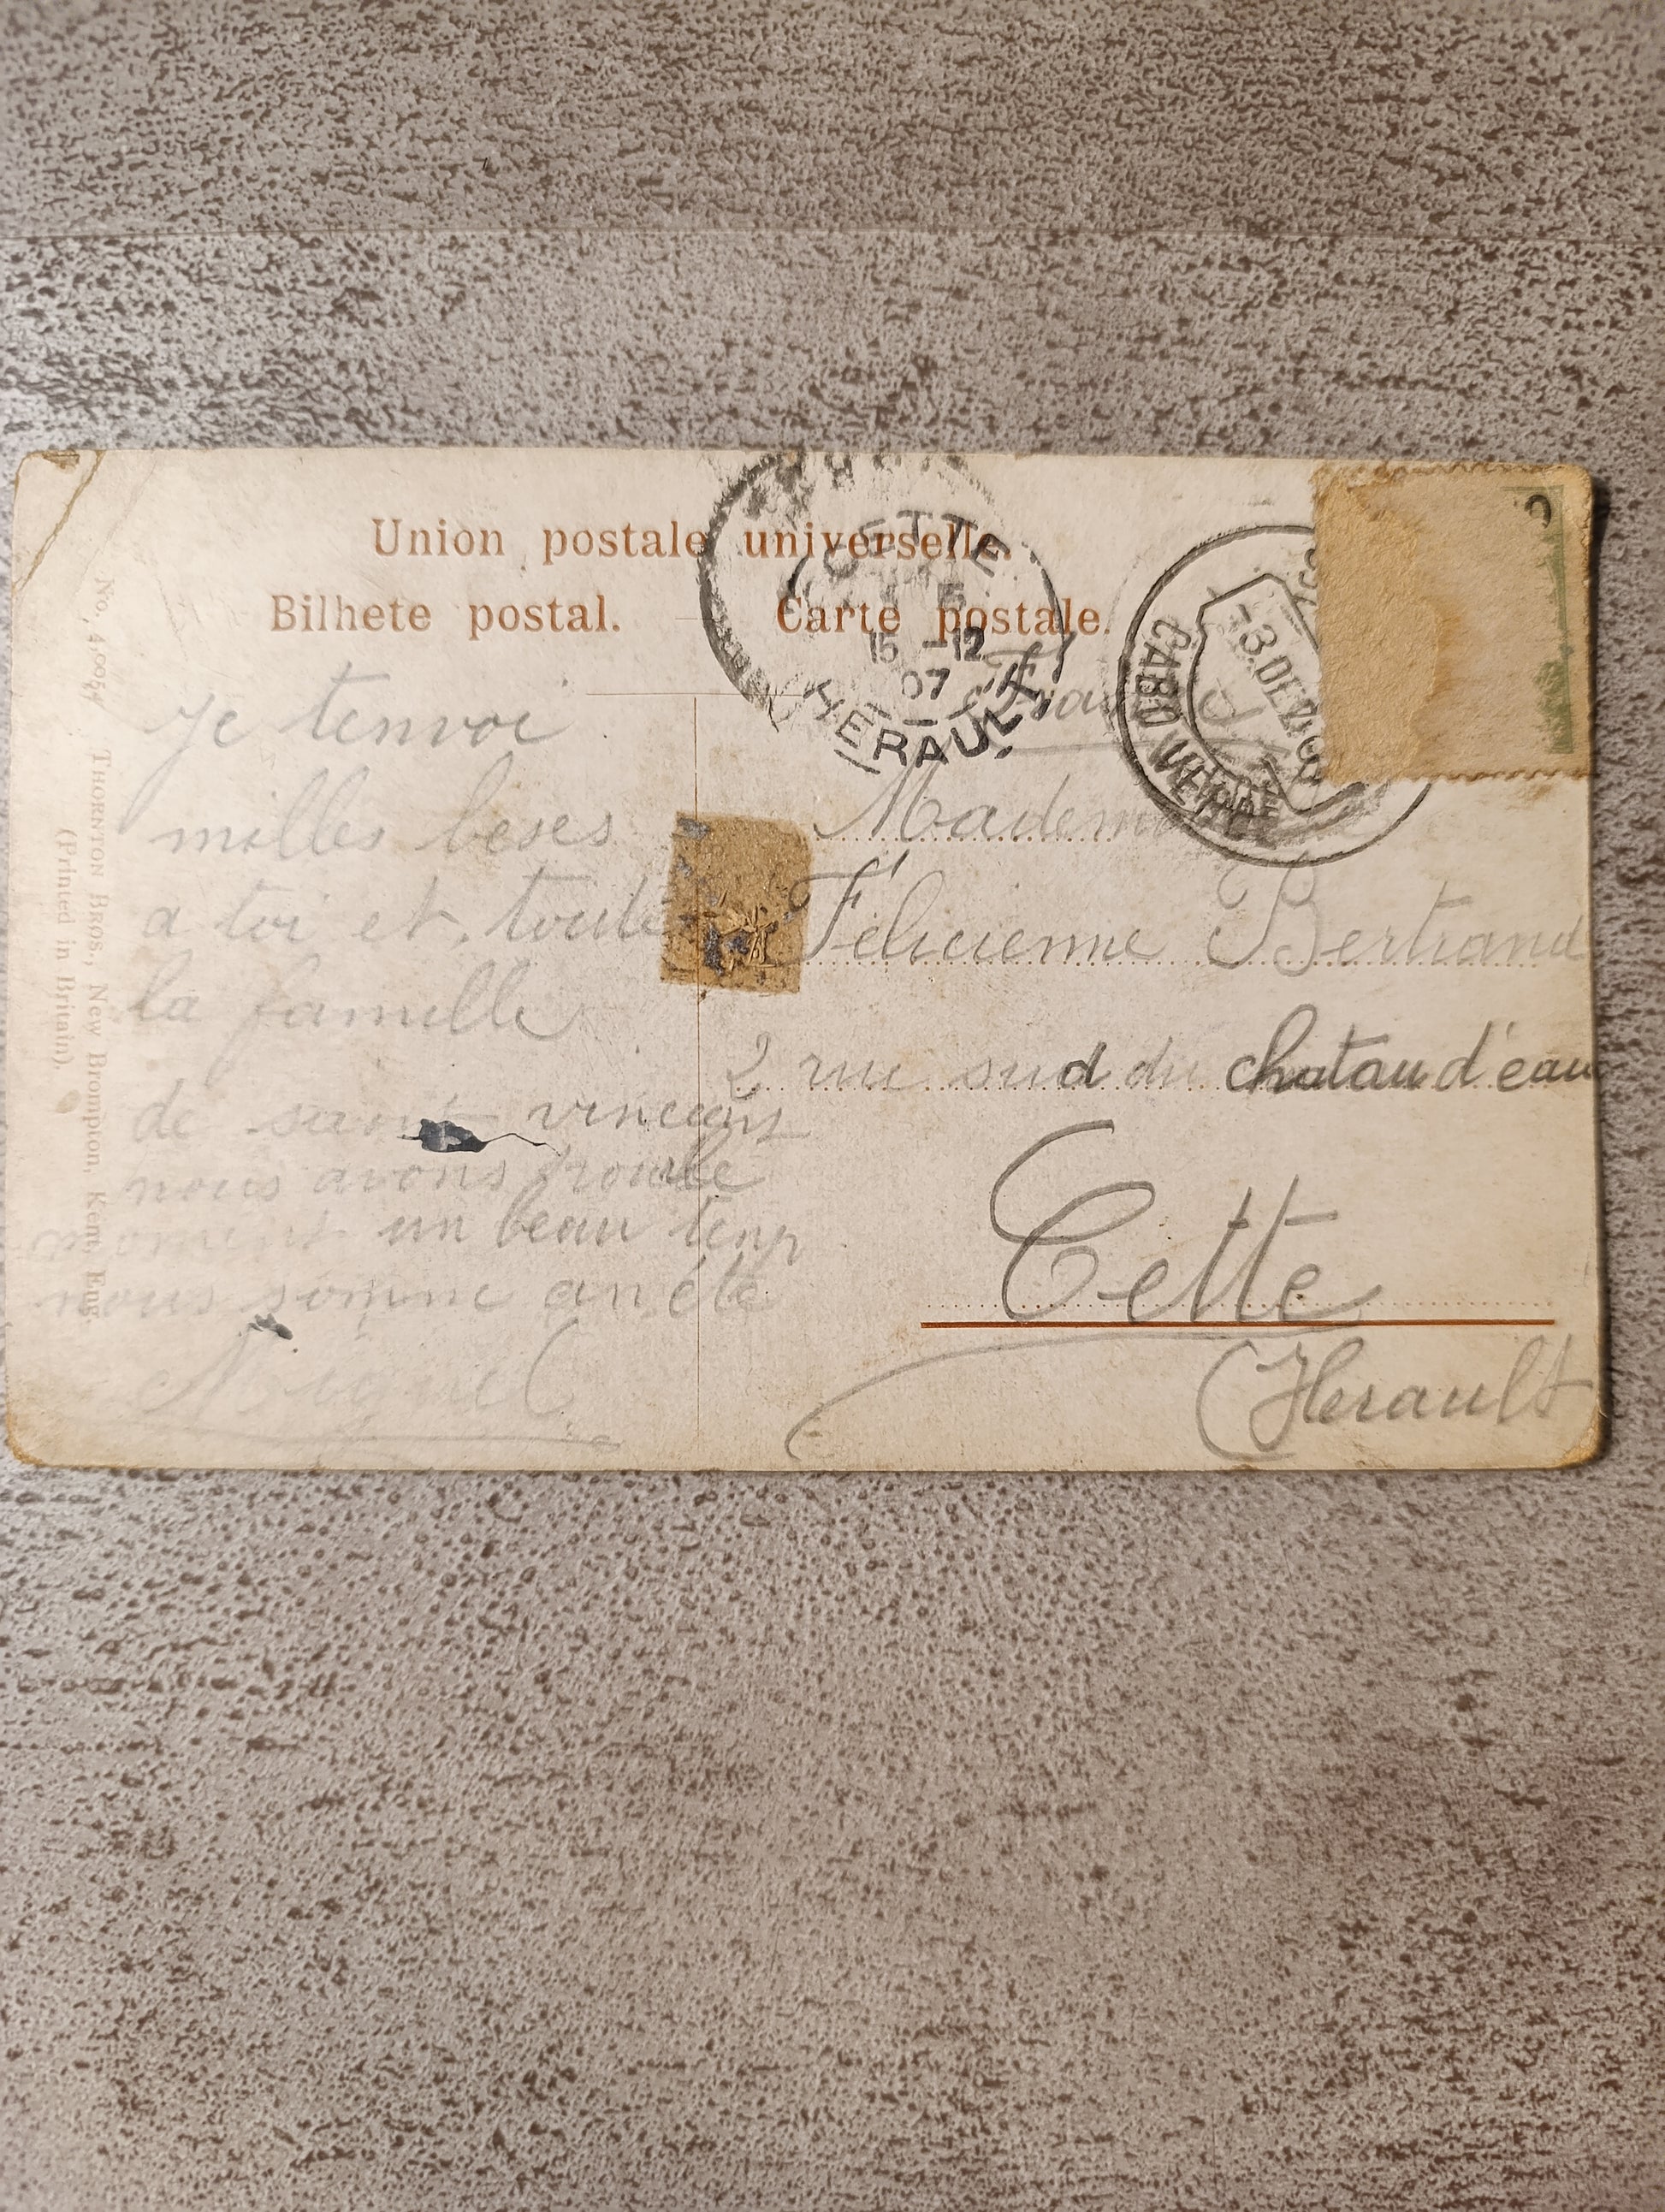 Union postale universelle.
Bilhete postal. Carte postale.
CETTE
15 -12
07
HERAULT
-3.DEZ.
CABO VERDE
No., 4,005
THORNTON BROS., New Brompton, Kent, Eng.
(Printed in Britain).
je tenvoi
milles beses
a toi et toute
la famille
de saint vincens
nous avons
moment un beau temp
nous somme an été
Miguel
Félicienne Bertrand
2 rue sud du chataud'eau
Cette
(Herault